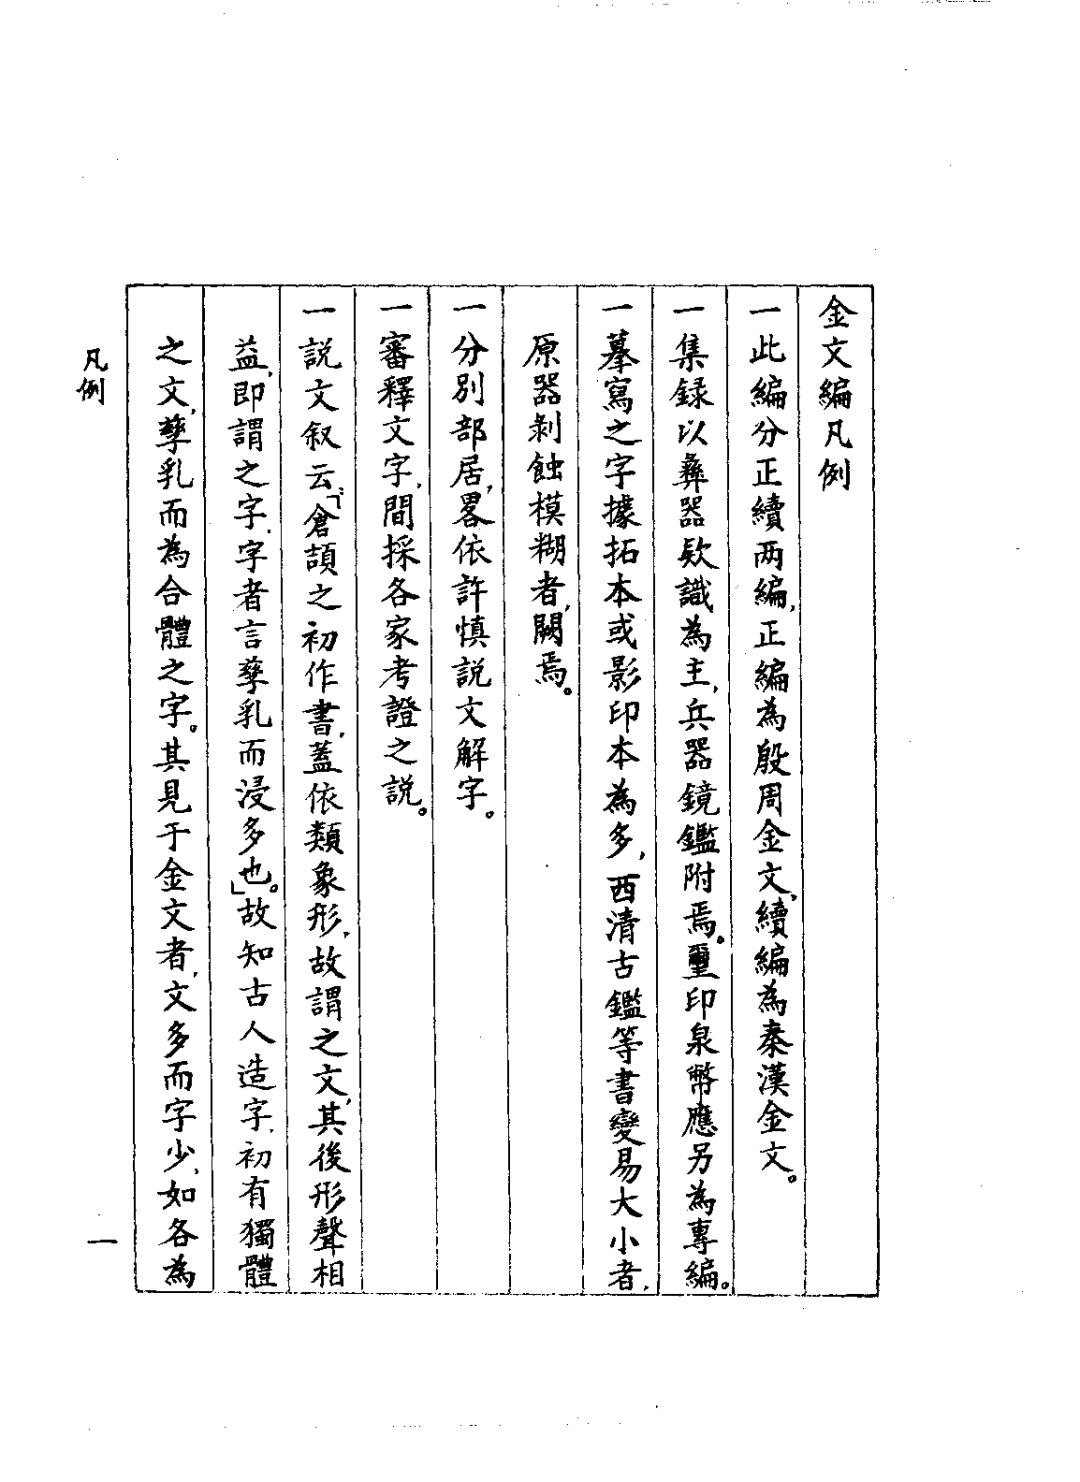 金文編凡例
一此編分正續两編,正編為殷周金文,續編為秦漢金文。
一集録以彝器欵識為主,兵器鏡鑑附焉。璽印泉幣應另為專編。
一摹寫之字據拓本或影印本為多,西清古鑑等書變易大小者,
原器剝蝕模糊者,闕焉。
一分別部居,畧依許慎説文解字。
一審釋文字,間採各家考證之説。
一説文叙云:「倉頡之初作書,蓋依類象形,故謂之文,其後形聲相
益,即謂之字,字者言孳乳而浸多也。」故知古人造字,初有獨體
之文,孳乳而為合體之字。其見于金文者,文多而字少,如各為
凡例
一